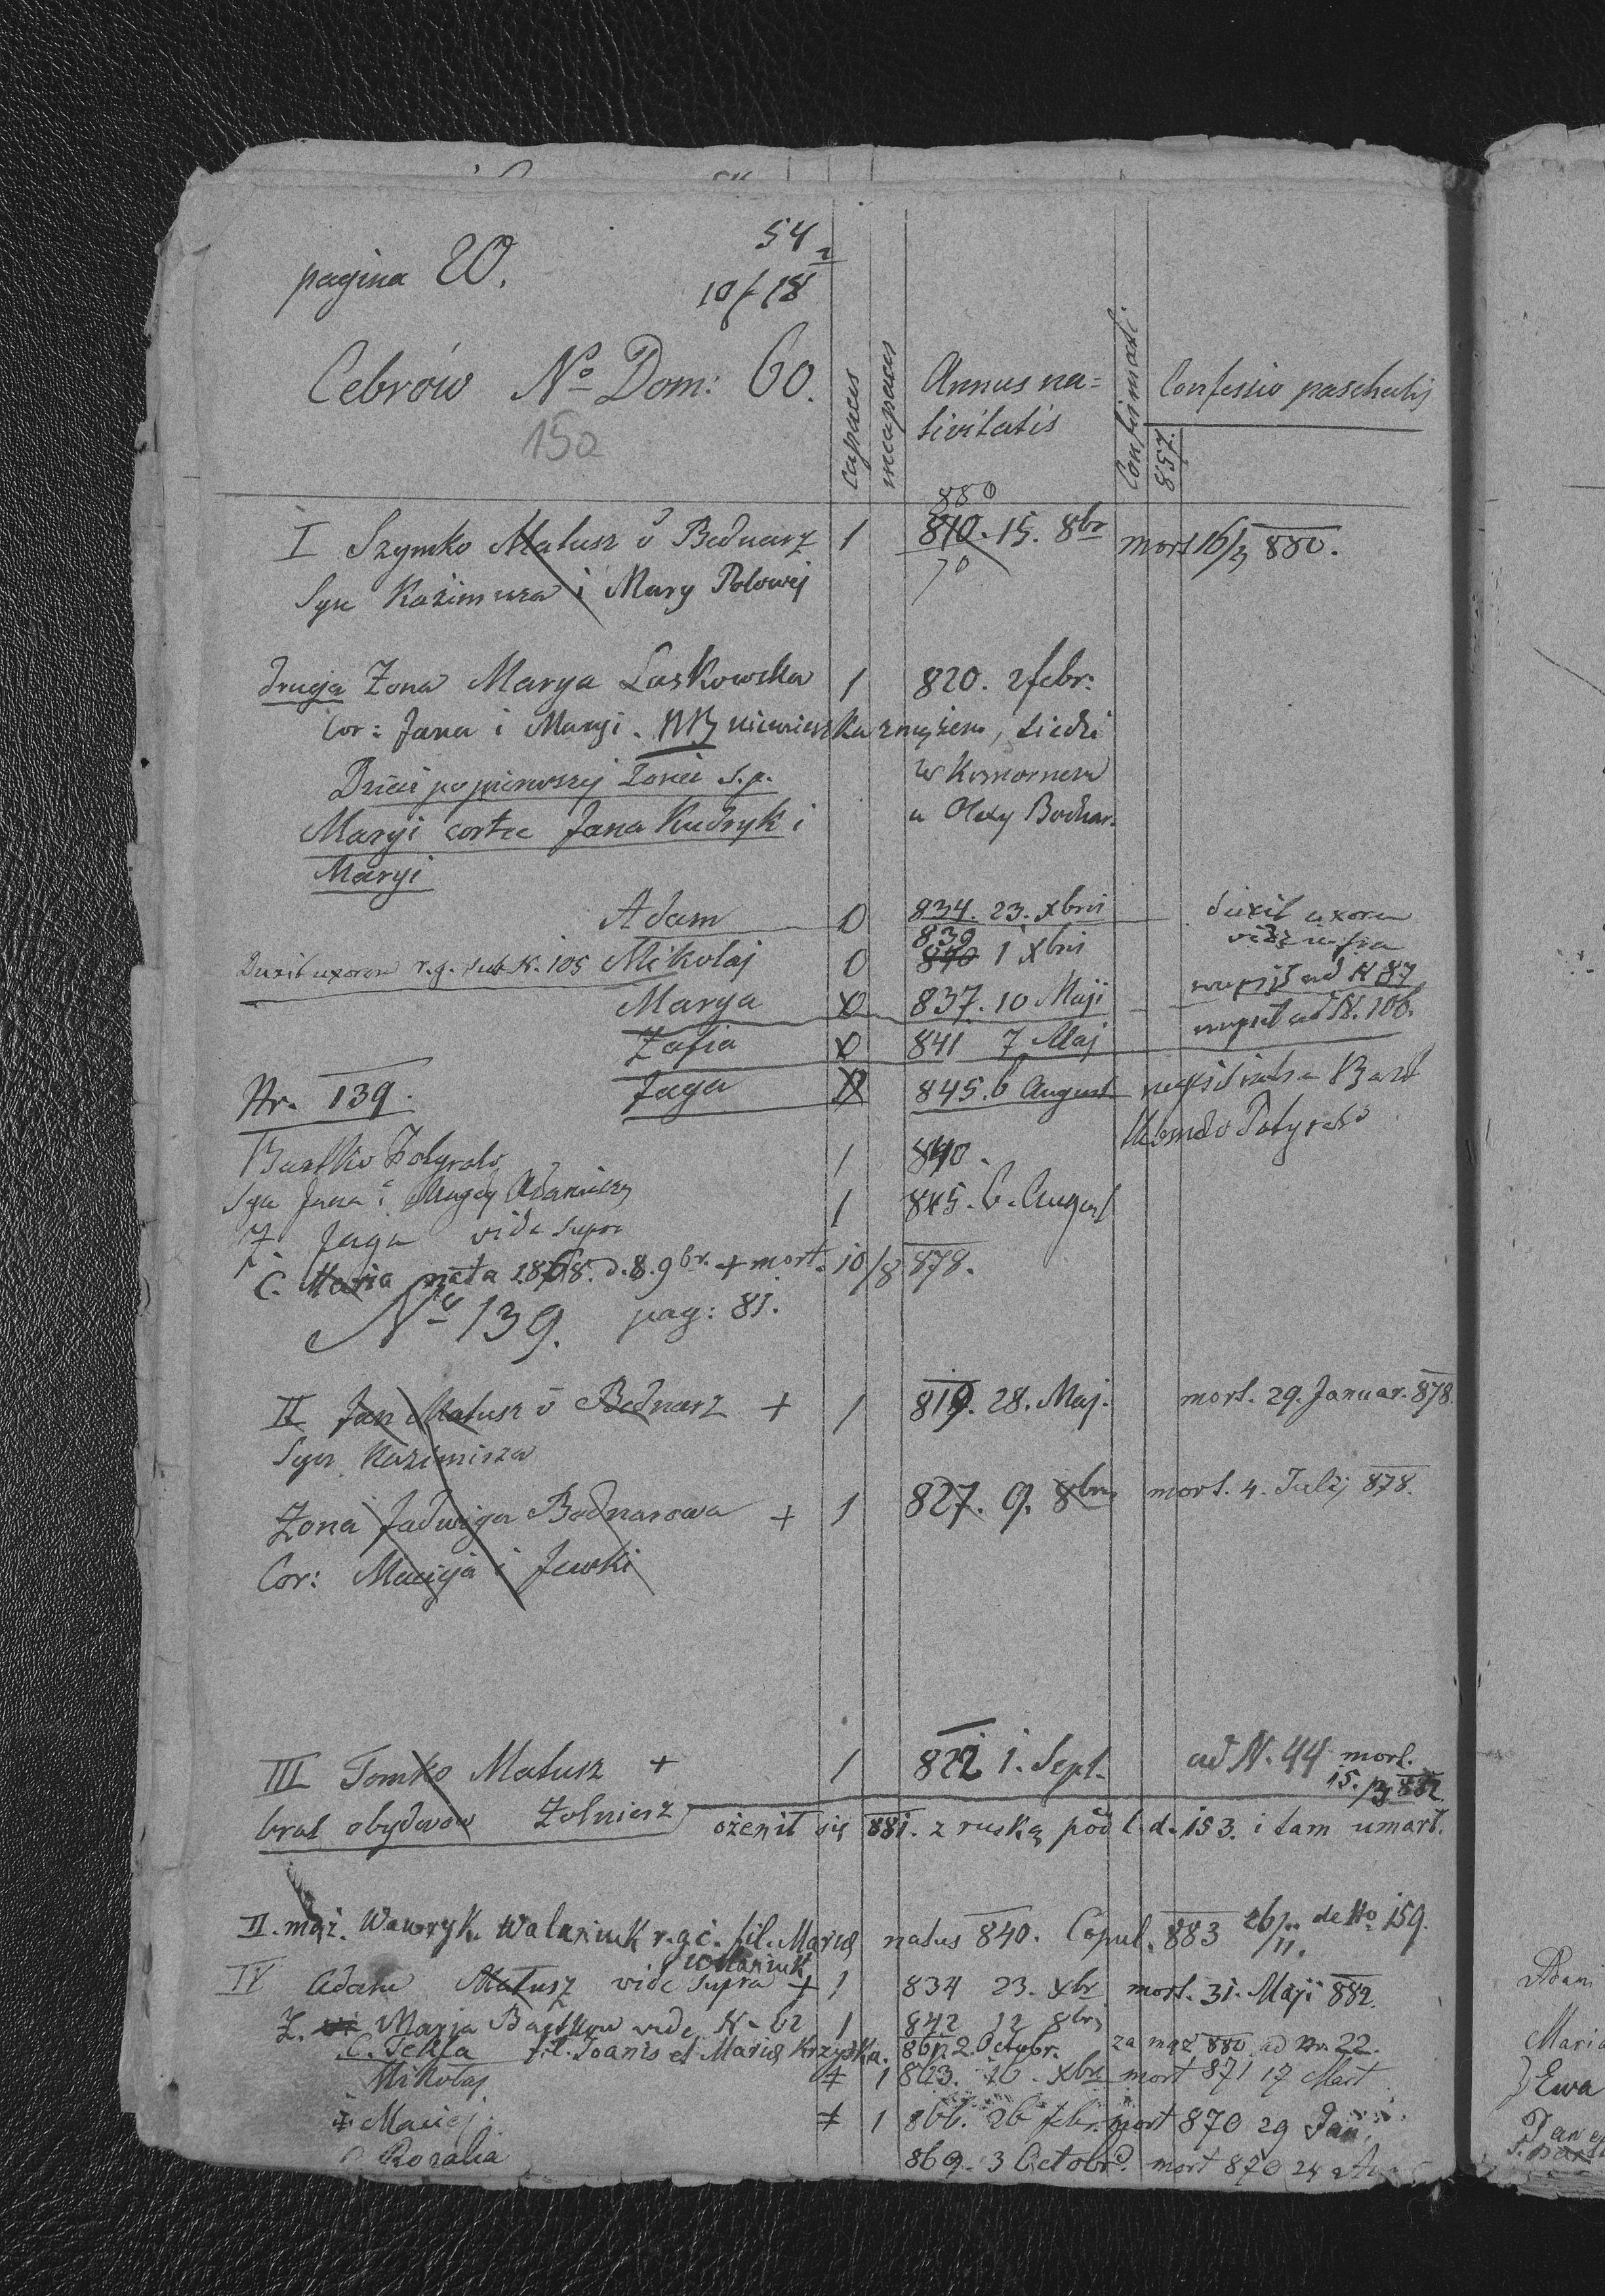 pagina 20.
54
10/18
Cebrów No Dom: 60.
150
capaces
incapaces
Annus na=
tivitatis
Confirmati
Confessio paschalis
857.
880
I Szymko Matusz v Bednarz 1 810. 15. 8br mort 16/3 880.
70
Syn Kazimierza i Mary Polowej
druga Żona Marya Laskowska 1 820. 2 febr:
Cor: Jana i Maryi. NB niemieszka z mężem, siedzi
Dzieci po pierwszej żonie s.p. w Komornem
Maryi cortce Jana Kudryk i u Olexy Bodnar.
Maryi
Adam 0 834. 23. Xbris duxit uxorem
839 vide infra
Duxit uxorem r.g. sub N. 105 Mikolaj 0 840 1 Xbris
Marya X0 837. 10 Maji nupsit ad N 87
Zofia X0 841 7 Maj nupsit ad N. 106.
Nr. 139. Jaga 845. 6 August nupsit
Bartko 1 840.
Syn Jana i 1 845. 6. August
Ż Jaga vide supra
C. Maria nata 1868. d. 8. 9br. + mort. 10/8 878.
No 139. pag: 81.
II Jan Matusz v Bednarz + 1 819. 28. Maj. mort. 29. Januar. 878.
Syn Kazimierza
Żona Jadwiga Bednarowa + 1 827. 9. 8bris mort. 4. Julij 878.
Cor: Macieja i Jewki
III Tomko Matusz + 1 822 1. Sept. ad N. 44 mort.
15. /3 882.
brat obydwow Żolnierz ożenił się 881. z ruską pod l. d. 153. i tam umarł.
II. mąż. Wawryk Walaniuk r.g.c. fil. Mariæ natus 840. Copul. 883 26/11. de No 159.
Walaniuk
IV Adam Matusz vide supra + 1 834 23. Xbr mort. 31. Maji 882.
Ż. Marja Bartkow vide N- 62 1 842 12 8bris
C. Tekla fil. Joanis et Mariæ Krzyska. 861. 2. Octobr. za mąż 880. ad Nr. 22.
Mikołaj ‡ 1 863. 16. Xbris mort 871 17 Mart
+ Maciej ‡ 1 866. 26 febr. mort 870 29 Jan.
Rozalia 869. 3 Octobr. mort 870 24
Adam
Maria
Ewa
Jan